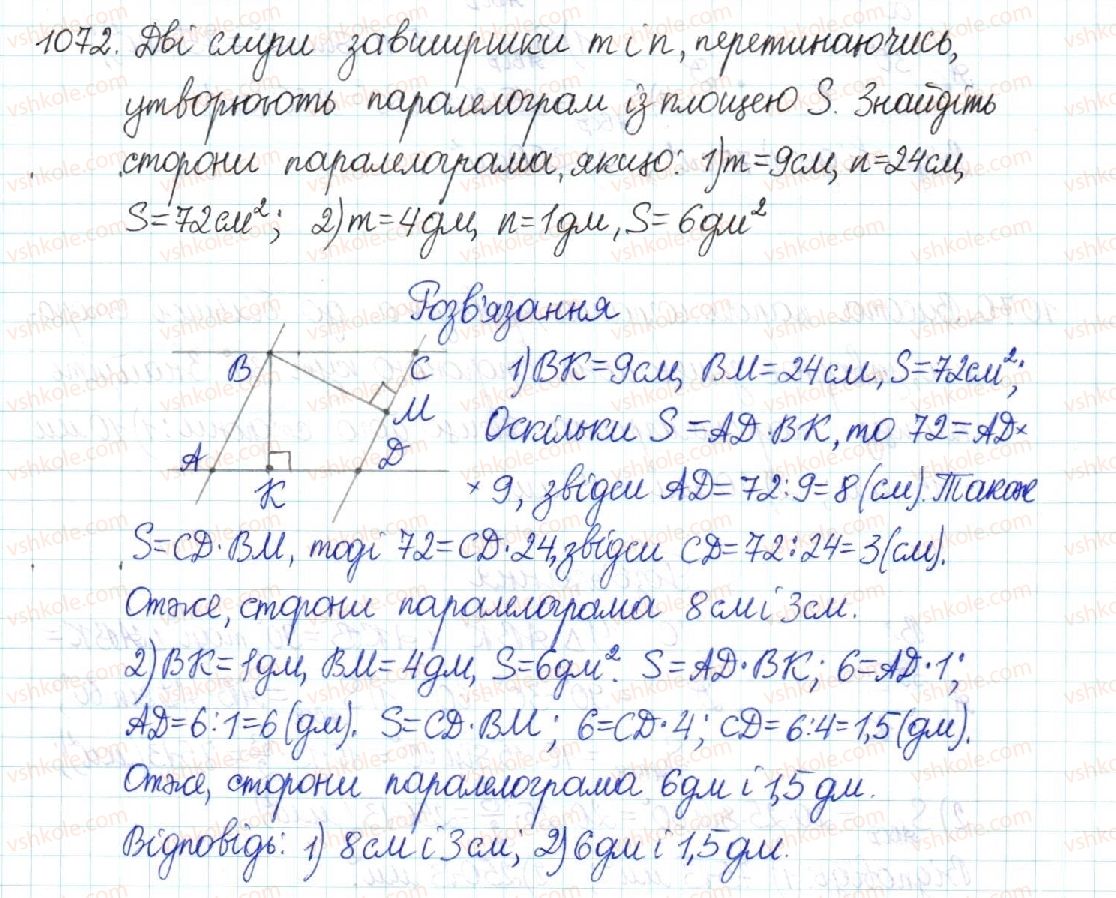 1072. Дві смуги завширшки m і n, перетинаючись,
утворюють паралелограм із площею S. Знайдіть
сторони паралелограма, якщо: 1) m=9см, n=24см,
S=72см²; 2) m=4дм, n=1дм, S=6дм²
Розв'язання
B C
M
A D
K
1) BK=9см, BM=24см, S=72см²;
Оскільки S=AD·BK, то 72=AD×
×9, звідси AD=72:9=8(см). Також
S=CD·BM, тоді 72=CD·24, звідси CD=72:24=3(см).
Отже, сторони паралелограма 8см і 3см.
2) BK=1дм, BM=4дм, S=6дм². S=AD·BK; 6=AD·1;
AD=6:1=6(дм). S=CD·BM; 6=CD·4; CD=6:4=1,5(дм).
Отже, сторони паралелограма 6дм і 1,5дм.
Відповідь: 1) 8см і 3см; 2) 6дм і 1,5дм.
vshkole.com